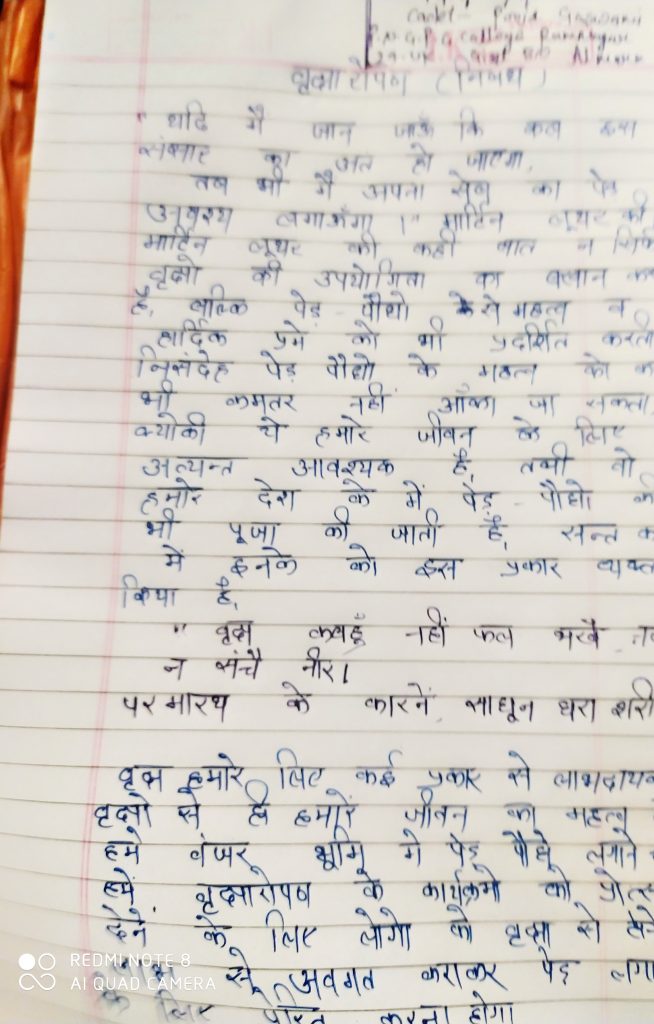 Cadet - Pooja Goswami
वृक्षारोपण (निबंध)
"यदि मैं जान जाऊँ कि कल इस
संसार का अंत हो जाएगा,
तब भी मैं अपना सेब का पेड़
अवश्य लगाऊँगा।" मार्टिन लूथर की
मार्टिन लूथर की कही बात न सिर्फ
वृक्षो की उपयोगिता का बखान
है, बल्कि पेड़ - पौधो से महत्व व
हार्दिक प्रेम को भी प्रदर्शित करती
निसंदेह पेड़ पौधो के महत्व को
भी कमतर नहीं आँका जा सकता,
क्योकी ये हमारे जीवन के लिए
अत्यन्त आवश्यक है, तभी तो
हमारे देश के में पेड़ - पौधो की
भी पूजा की जाती है, सन्त
में इनके को इस प्रकार व्यक्त
किया है,
" वृक्ष कबहुँ नहीं फल भखै
न संचै नीर।
परमारथ के कारनें, साधून धरा
वृक्ष हमारे लिए कई प्रकार से लाभदायक
वृक्षो से ही हमारे जीवन का महत्व
हमे बंजर भूमि मे पेड़ पौधे लगाने
हमें वृक्षारोपण के कार्यक्रमो को
देने के लिए लोगो को वृक्षो से
से अवगत कराकर पेड़
के लिए प्रेरित करना होगा
REDMI NOTE 8
AI QUAD CAMERA